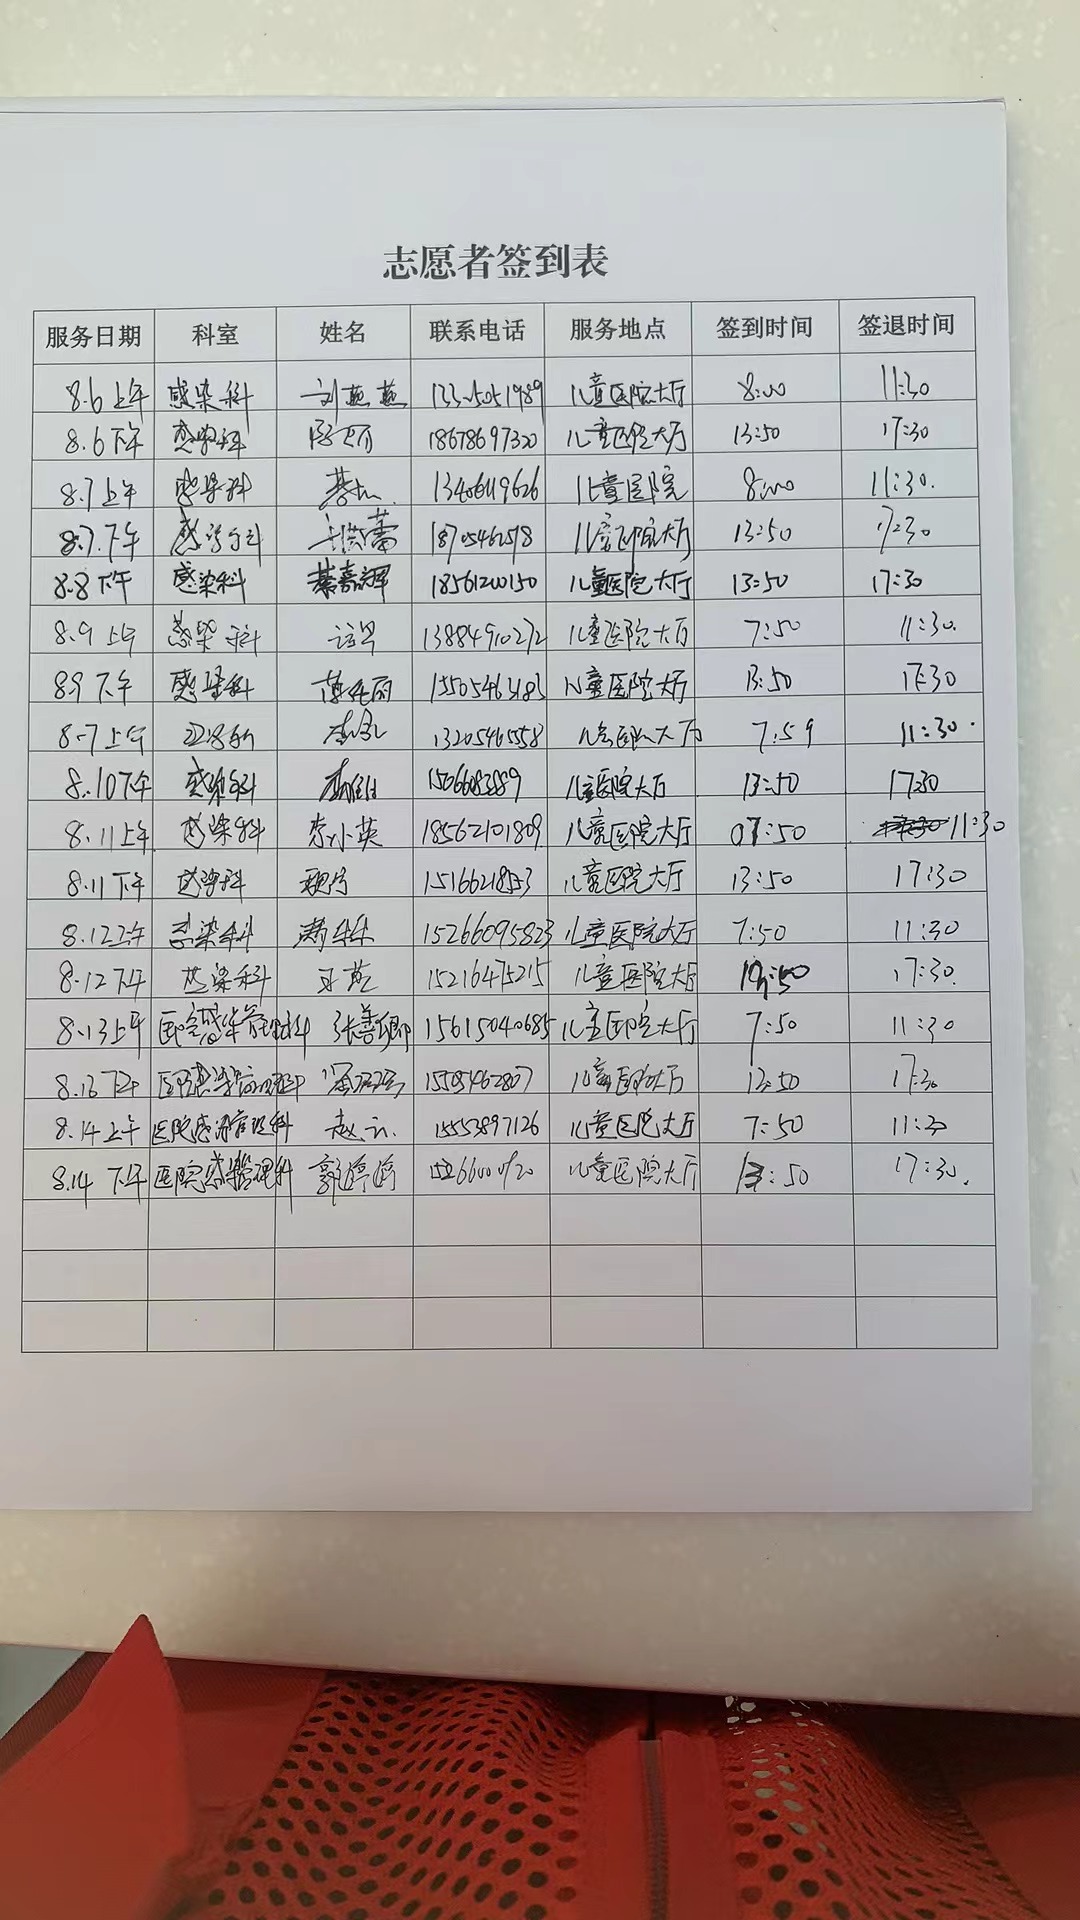 志愿者签到表
服务日期 科室 姓名 联系电话 服务地点 签到时间 签退时间
8.6上午 感染科 刘燕燕 儿童医院大厅 8:00 11:30
8.6下午 感染科 18678697320 儿童医院大厅 13:50 17:30
8.7上午 感染科 儿童医院 8:00 11:30.
8.7.下午 感染科 儿童医院大厅 13:50 17:30
8.8下午 感染科 綦嘉辉 18561200150 儿童医院大厅 13:50 17:30
8.9上午 感染科 13884910272 儿童医院大厅 7:50 11:30.
8.9下午 感染科 15505463183 儿童医院大厅 13:50 17:30
8.7上午 13205465558 儿童医院大厅 7:59 11:30.
8.10下午 感染科 儿童医院大厅 13:50 17:30
8.11上午 感染科 李小英 18562101809 儿童医院大厅 07:50 11:30
8.11下午 感染科 儿童医院大厅 13:50 17:30
8.12上午 感染科 15266095823 儿童医院大厅 7:50 11:30
8.12下午 感染科 15216475215 儿童医院大厅 13:50 17:30.
8.13上午 医院感染管理科 张善卿 15615040685 儿童医院大厅 7:50 11:30
8.13下午 医院感染管理科 15505462807 儿童医院大厅 13:50 17:30
8.14上午 医院感染管理科 赵云 15553897126 儿童医院大厅 7:50 11:30
8.14下午 医院感染管理科 郭婷婷 儿童医院大厅 13:50 17:30.